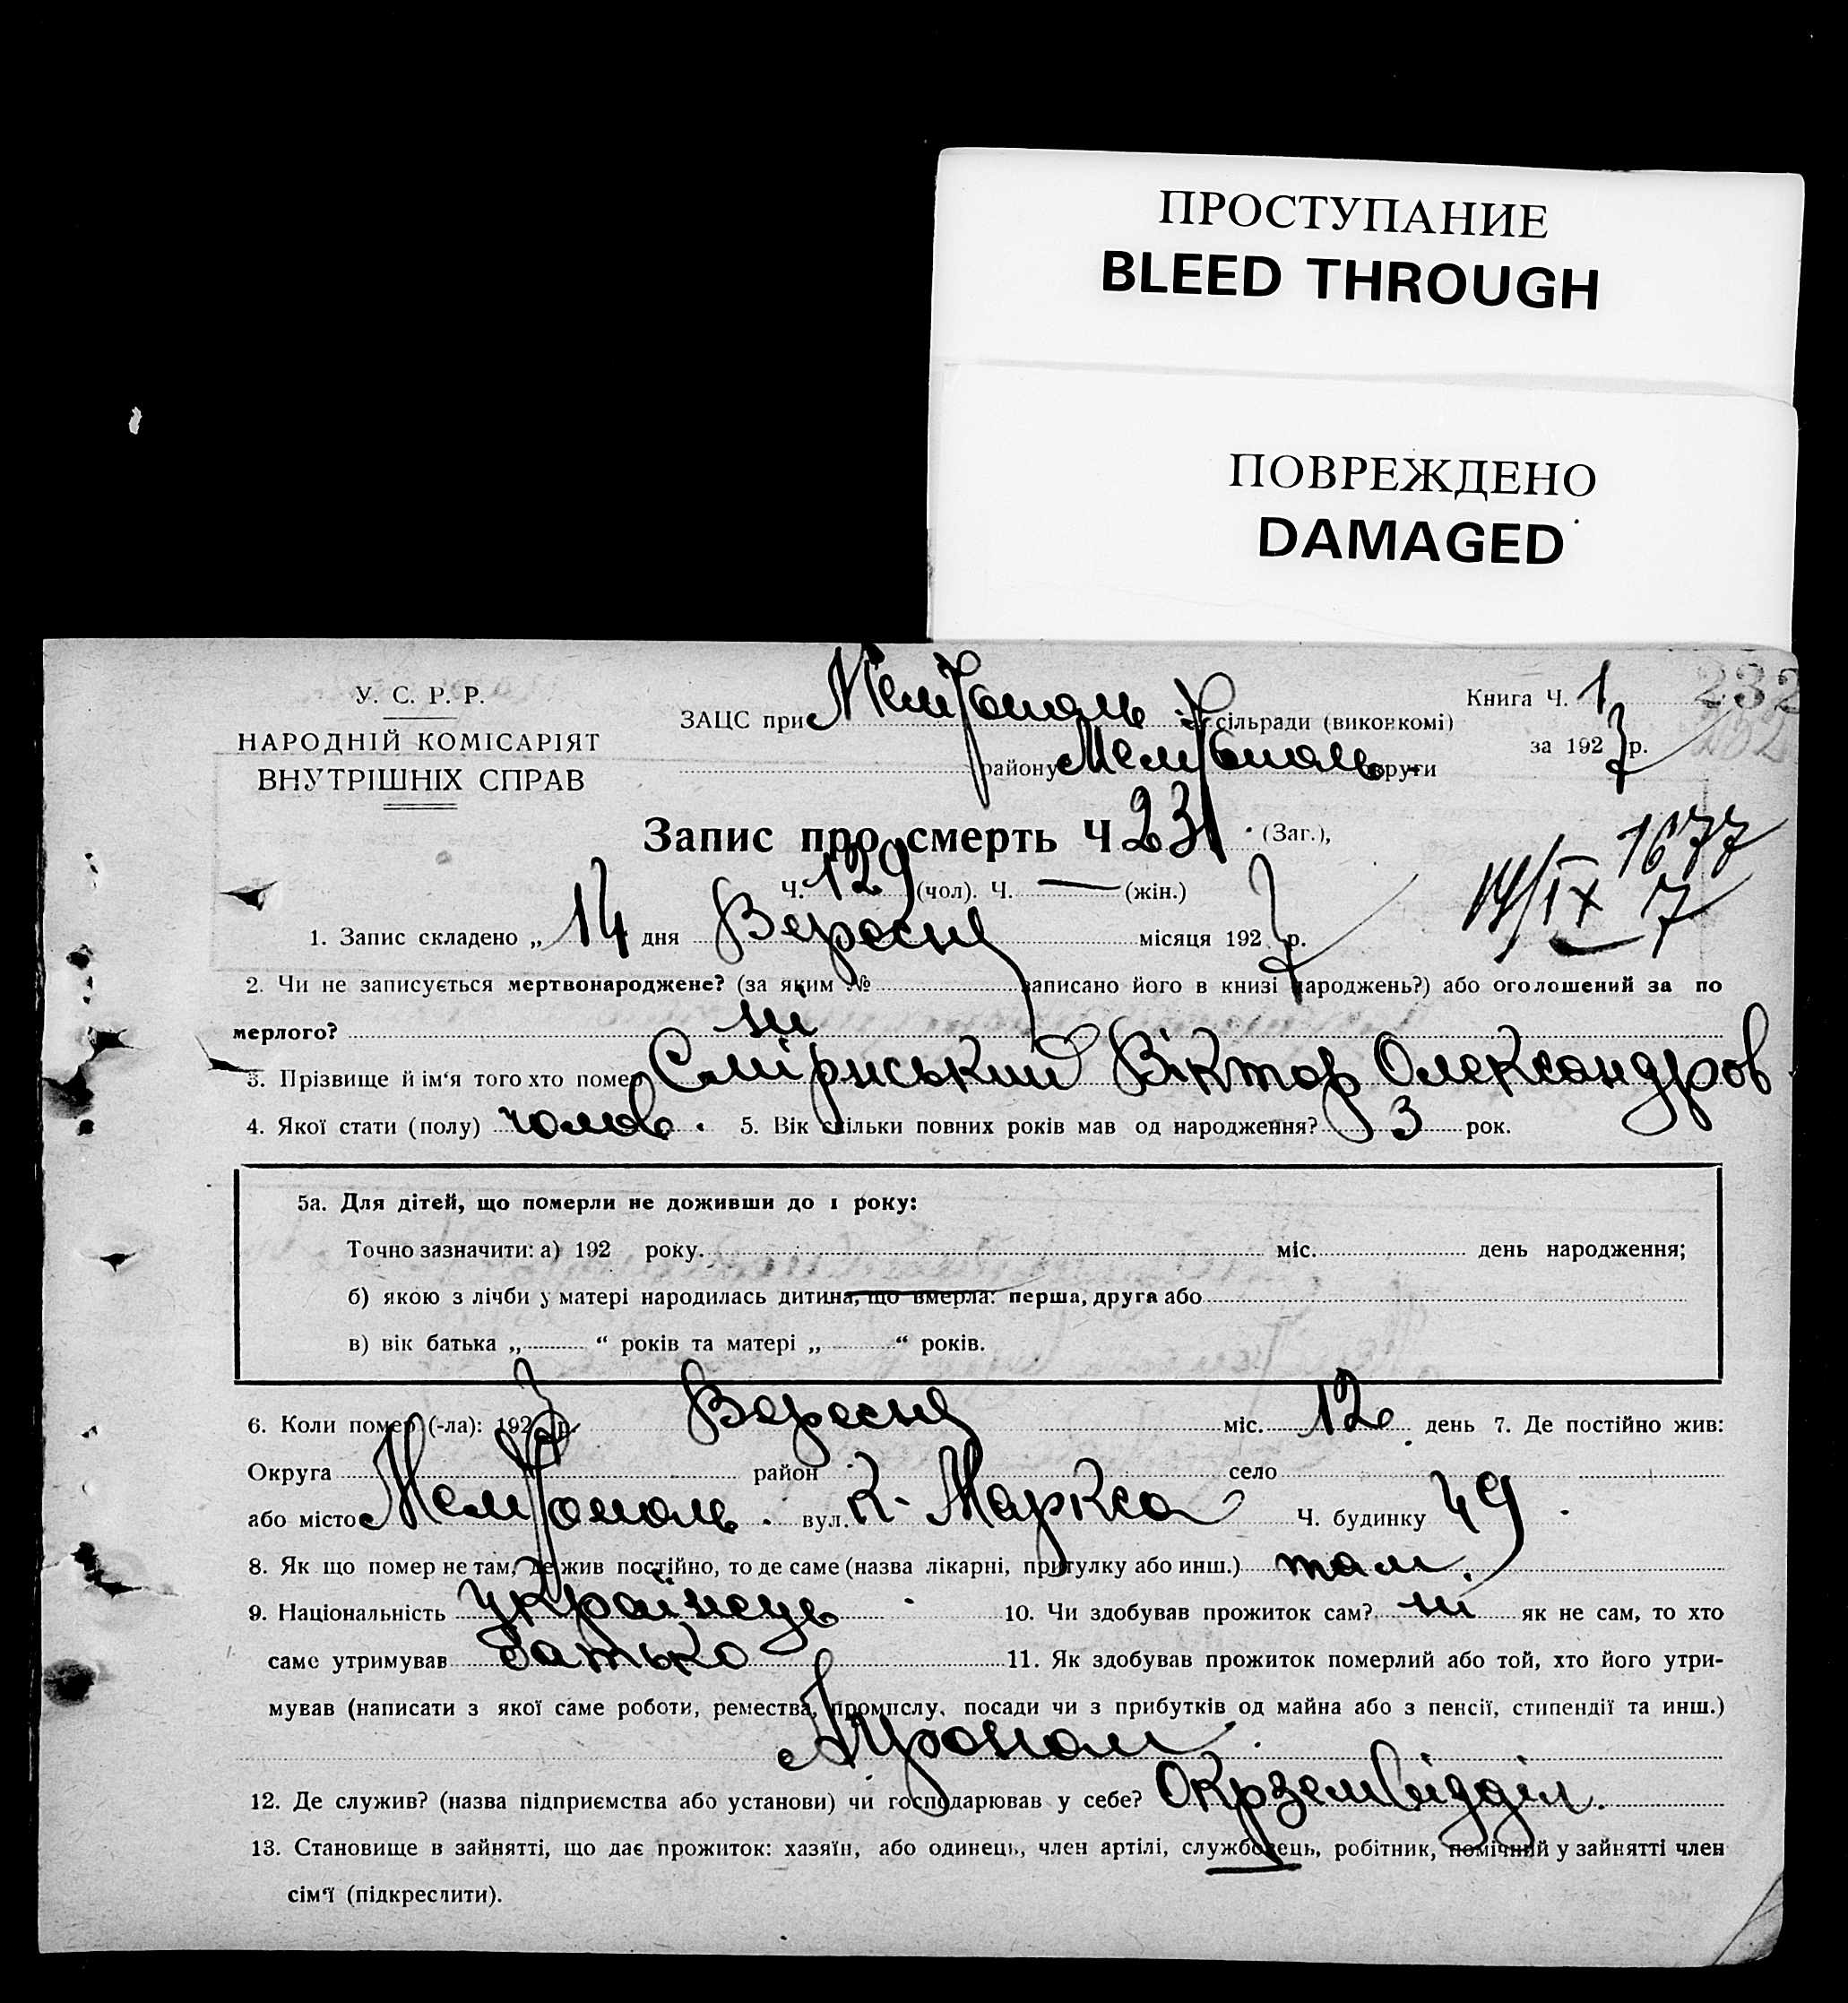 ПРОСТУПАНИЕ
BLEED THROUGH
ПОВРЕЖДЕНО
DAMAGED
У. С. Р. Р.
НАРОДНІЙ КОМІСАРІЯТ
ВНУТРІШНІХ СПРАВ
ЗАЦС при Мелітополь сільради (виконкомі)
району Мелітополь округи
Книга Ч. 1 232
за 1927 р.
Запис про смерть Ч 231 (Заг.),
Ч. 129 (чол). Ч. — (жін.)
1677
14/IX 7
1. Запис складено „ 14 дня Вересня місяця 1927 р.
2. Чи не записується мертвонароджене? (за яким № записано його в книзі народжень?) або оголошений за по
мерлого? ні
3. Прізвище й ім'я того хто помер Віктор Олександров
4. Якої стати (полу) чолов. 5. Вік скільки повних років мав од народження? 3 рок.
5а. Для дітей, що померли не доживши до 1 року:
Точно зазначити: а) 192 року. міс. день народження;
б) якою з лічби у матері народилась дитина, що вмерла: перша, друга або
в) вік батька „ “ років та матері „ “ років.
6. Коли помер (-ла): 1927 р. Вересня міс. 12 день 7. Де постійно жив:
Округа район село
або місто Мелітополь. вул. К. Маркса Ч. будинку 49
8. Як що помер не там, де жив постійно, то де саме (назва лікарні, притулку або инш.) там.
9. Національність українець 10. Чи здобував прожиток сам? ні як не сам, то хто
саме утримував батько 11. Як здобував прожиток померлий або той, хто його утри-
мував (написати з якої саме роботи, ремества, промислу, посади чи з прибутків од майна або з пенсії, стипендії та инш.)
Агроном
12. Де служив? (назва підприємства або установи) чи господарював у себе? Окрземвідділ.
13. Становище в зайнятті, що дає прожиток: хазяїн, або одинець, член артілі, службовець, робітник, помічний у зайнятті член
сім'ї (підкреслити).